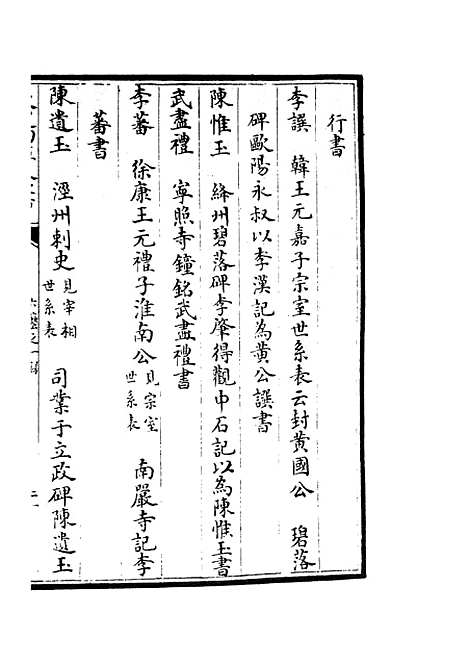 行書
李譔　韓王元嘉子宗室世系表云封黄國公　碧落
碑歐陽永叔以李漢記為黄公譔書
陳惟玉　絳州碧落碑李肇得觀中石記以為陳惟玉書
武盡禮　寧照寺鐘銘武盡禮書
李蕃　徐康王元禮子淮南公見宗室世系表　南嚴寺記李
蕃書
陳遺玉　涇州刺史見宰相世系表　司業于立政碑陳遺玉